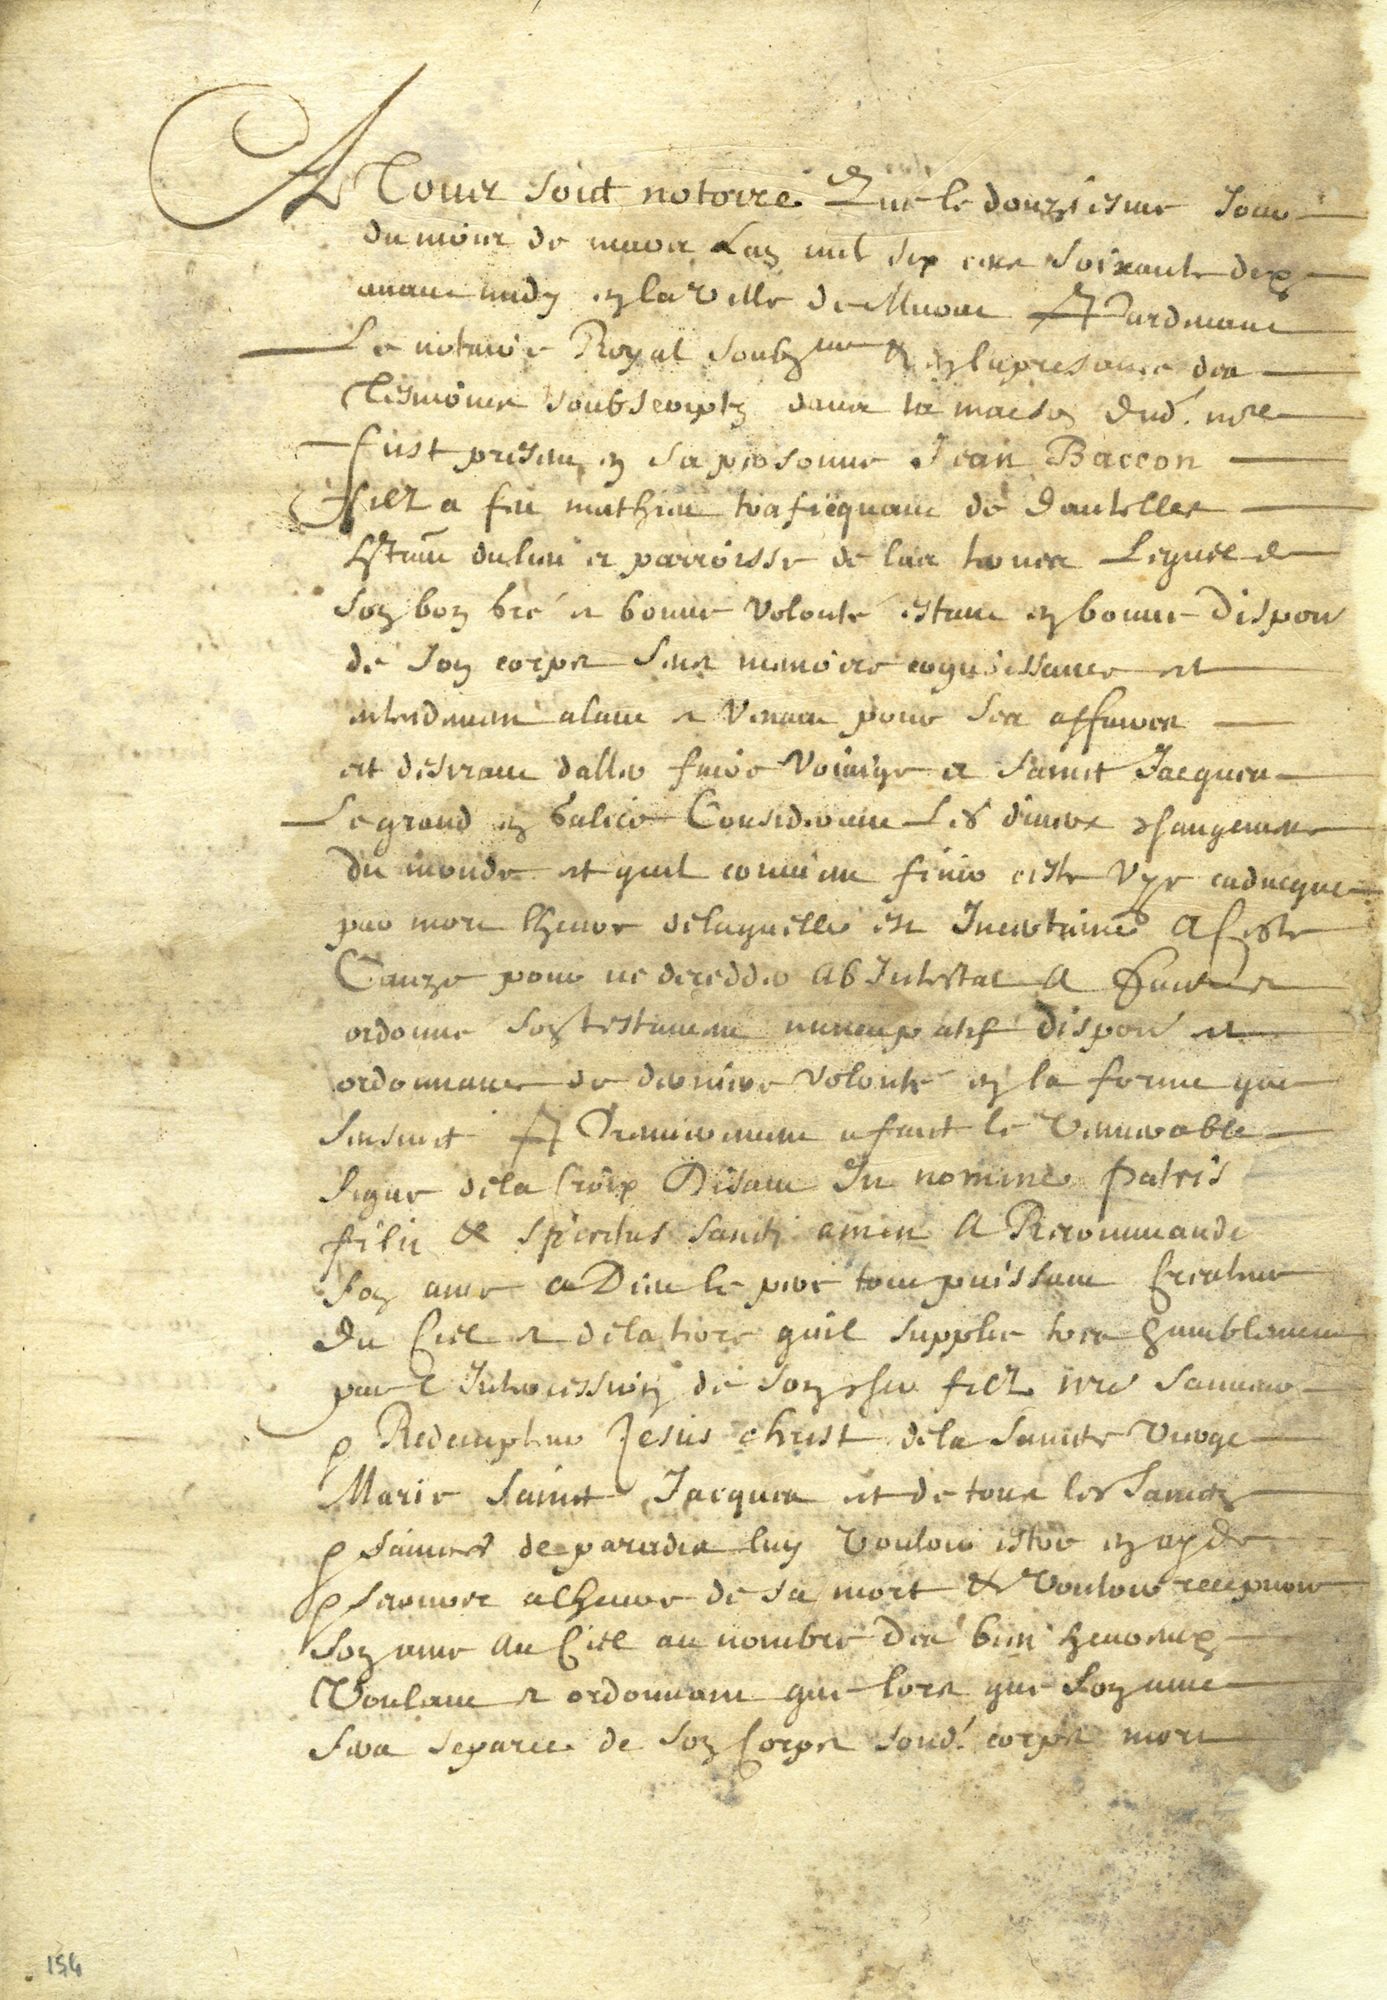 A Tous soict notoire Que le douziesme Jour
du mois de mars Lan mil six cens soixante dix
avant midy en la ville de Murat Pardevant
Le notaire Royal soubzne & en la presance des
Tesmoins soubscriptz dans la maison dud. nore
fust presant en sa personne Jean Baccon
filz a feu mathieu trafiequant de dantelles
du lieu et parroisse de las Lequel de
son bon gré et bonne volonté estant en bonne dispoon
de son corps sens memoire cognoissance et
entendement alant et venant pour ses affaires
et desirant daller faire voiaige a sainct Jacques
Le grand en galice Considerant Les divers changemens
du monde et quil convient finir ceste vye caducque
par mort lheure de laquelle est Incertaine A Ceste
Cauze pour ne dececdder ab Intestat A faict et
ordonne son testament nuncupatif dispoon et
ordonnance de derniere volonté en la forme que
sensuit Premierement a faict le venerable
signe de la Croix Disant In nomine Patris
filii & spiritus sancti amen A Recommande
son ame a Dieu le pere tout puissant Createur
du Ciel et de la terre quil supplie tres humblement
par l Intercession de son cher filz nre sauveur
& Redempteur Jesus christ de la Saincte Vierge
Marie Sainct Jacques et de tous les Sainctz
& sainctes de paradis luy vouloir estre en ayde
& secours a lheure de sa mort & vouloir recepvoir
son ame au Ciel au nombre des bien heureux
Voulant et ordonnant que lors que son ame
sera separee de son Corps sond. corps mort
154